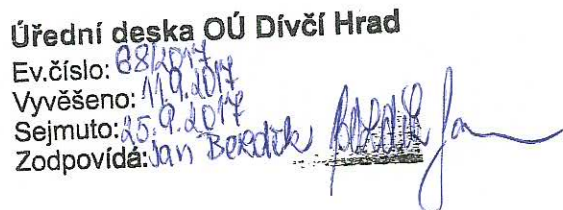 Úřední deska OÚ Dívčí Hrad
Ev.číslo: 68/2017
Vyvěšeno: 11.9.2017
Sejmuto: 25.9.2017
Zodpovídá: Jan Berdík